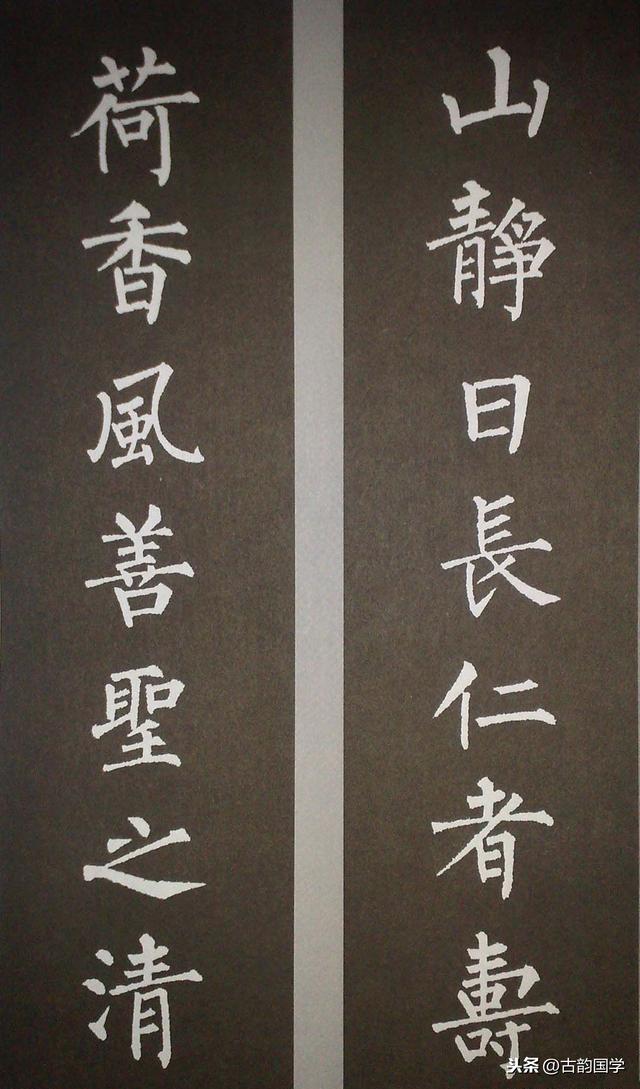 山靜日長仁者壽
荷香風善聖之清
头条@古韵国学